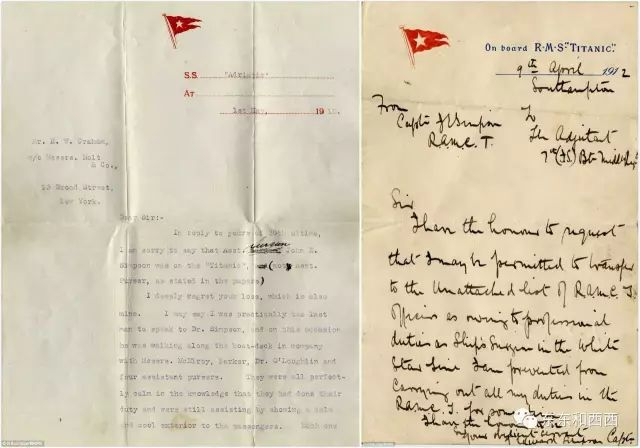 S.S. "Adriatic"
AT
1st May, 1912.
Mr. E. W. Graham,
c/o Messrs. Holt
& Co.,
93 Broad Street,
New York.
Dear Sir:-
In reply to yours of 30th ultimo,
surgeon
I am sorry to say that Asst. John E.
Simpson was on the "Titanic", (not Asst.
Purser, as stated in the papers)
I deeply regret your loss, which is also
mine. I may say I was practically the last
man to speak to Dr. Simpson, and on this occasion
he was walking along the boat-deck in company
with Messrs. McElroy, Barker, Dr. O'Loughlin and
four assistant pursers. They were all perfect-
ly calm in the knowledge that they had done their
duty and were still assisting by showing a calm
and cool exterior to the passengers. Each one
On board R·M·S "TITANIC."
9th April 1912
Southampton
From
Captn J E Simpson
R.A.M.C. T.
To
The Adjutant
Sir
I have the honour to request
that I may be permitted to transfer
to the Unattached list of R.A.M.C. T.
officers as owing to professional
duties as Ship's Surgeon in the White
Star Line I am prevented from
carrying out all my duties in the
R.A.M.C. T. for
I have the honour
Your obedient servant
Simpson Captn
东东和西西